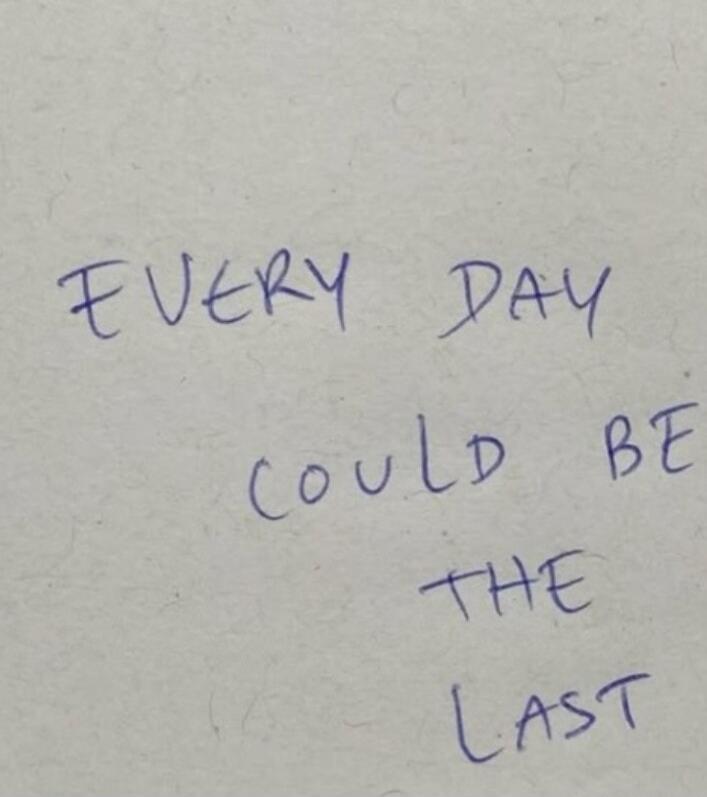 EVERY DAY
COULD BE
THE
LAST